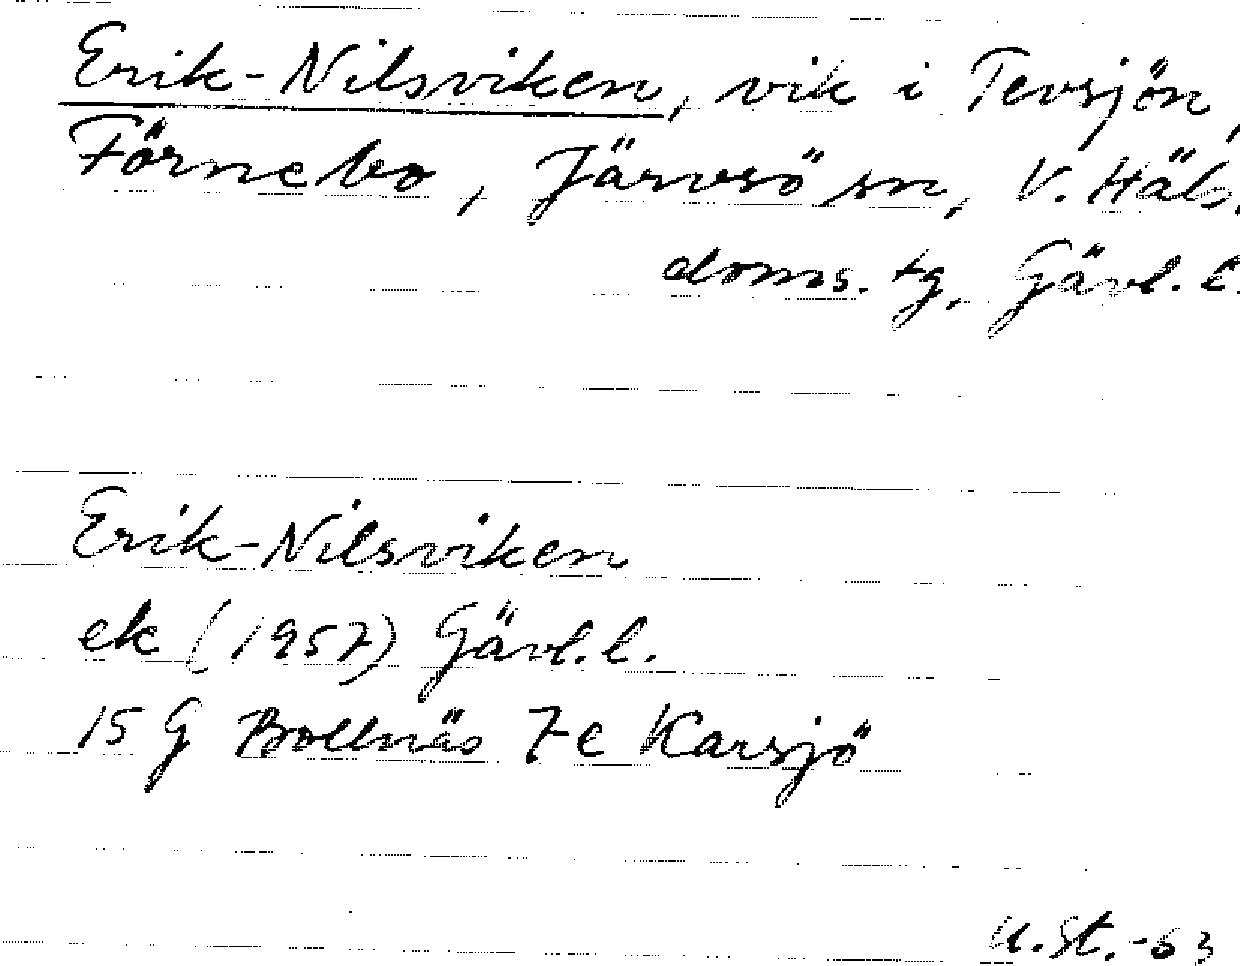 Erik-Nilsviken, vik i Tevsjön,
Förnebo, Järvsö sn, V. Häls.
doms. tg, Gävl. l.
Erik-Nilsviken
ek (1957) Gävl. l.
15 G Bollnäs 7e Karsjö
U. St. -63